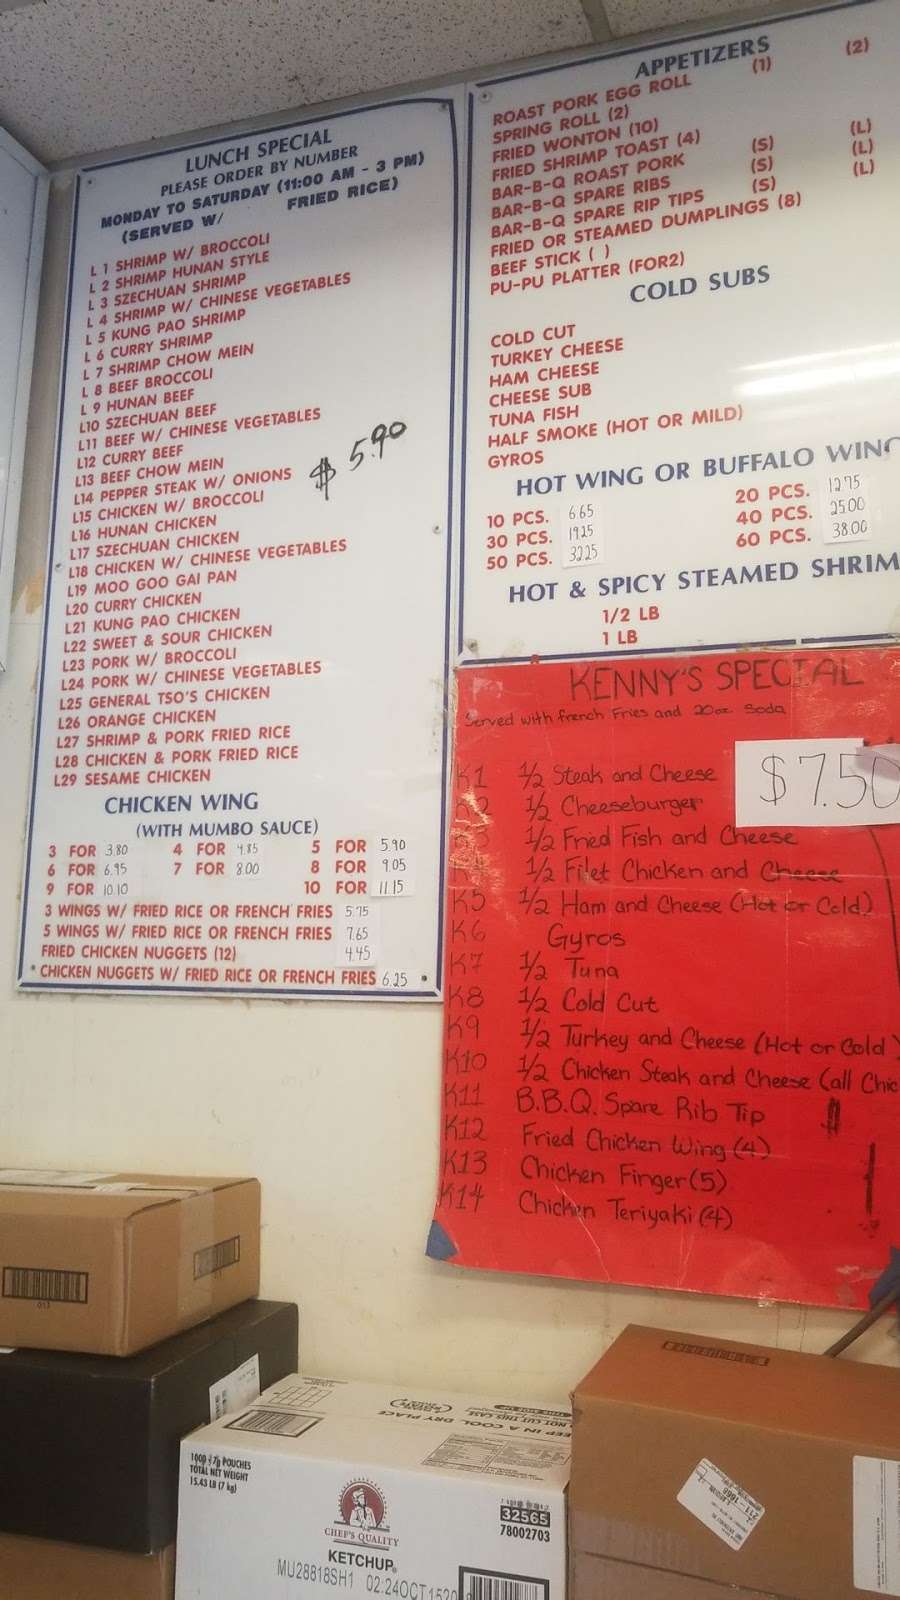 LUNCH SPECIAL
PLEASE ORDER BY NUMBER
MONDAY TO SATURDAY (11:00 AM - 3 PM)
(SERVED W/ FRIED RICE)
L 1 SHRIMP W/ BROCCOLI
L 2 SHRIMP HUNAN STYLE
L 3 SZECHUAN SHRIMP
L 4 SHRIMP W/ CHINESE VEGETABLES
L 5 KUNG PAO SHRIMP
L 6 CURRY SHRIMP
L 7 SHRIMP CHOW MEIN
L 8 BEEF BROCCOLI
L 9 HUNAN BEEF
L10 SZECHUAN BEEF
L11 BEEF W/ CHINESE VEGETABLES
L12 CURRY BEEF
L13 BEEF CHOW MEIN
L14 PEPPER STEAK W/ ONIONS
L15 CHICKEN W/ BROCCOLI
L16 HUNAN CHICKEN
L17 SZECHUAN CHICKEN
L18 CHICKEN W/ CHINESE VEGETABLES
L19 MOO GOO GAI PAN
L20 CURRY CHICKEN
L21 KUNG PAO CHICKEN
L22 SWEET & SOUR CHICKEN
L23 PORK W/ BROCCOLI
L24 PORK W/ CHINESE VEGETABLES
L25 GENERAL TSO'S CHICKEN
L26 ORANGE CHICKEN
L27 SHRIMP & PORK FRIED RICE
L28 CHICKEN & PORK FRIED RICE
L29 SESAME CHICKEN
$ 5.90
CHICKEN WING
(WITH MUMBO SAUCE)
3 FOR 3.80 4 FOR 4.85 5 FOR 5.90
6 FOR 6.95 7 FOR 8.00 8 FOR 9.05
9 FOR 10.10 10 FOR 11.15
3 WINGS W/ FRIED RICE OR FRENCH FRIES 5.75
5 WINGS W/ FRIED RICE OR FRENCH FRIES 7.65
FRIED CHICKEN NUGGETS (12) 4.45
* CHICKEN NUGGETS W/ FRIED RICE OR FRENCH FRIES 6.25
APPETIZERS
ROAST PORK EGG ROLL (1) (2)
SPRING ROLL (2)
FRIED WONTON (10)
FRIED SHRIMP TOAST (4)
BAR-B-Q ROAST PORK (S) (L)
BAR-B-Q SPARE RIBS (S) (L)
BAR-B-Q SPARE RIP TIPS (S) (L)
FRIED OR STEAMED DUMPLINGS (8)
BEEF STICK ( )
PU-PU PLATTER (FOR2)
COLD SUBS
COLD CUT
TURKEY CHEESE
HAM CHEESE
CHEESE SUB
TUNA FISH
HALF SMOKE (HOT OR MILD)
GYROS
HOT WING OR BUFFALO WING
10 PCS. 6.65 20 PCS. 12.75
30 PCS. 19.25 40 PCS. 25.00
50 PCS. 32.25 60 PCS. 38.00
HOT & SPICY STEAMED SHRIM
1/2 LB
1 LB
KENNY'S SPECIAL
Served with french Fries and 20oz. Soda
$7.50
K1 1/2 Steak and Cheese
K2 1/2 Cheeseburger
K3 1/2 Fried Fish and Cheese
K4 1/2 Filet Chicken and Cheese
K5 1/2 Ham and Cheese (Hot or Cold)
K6 Gyros
K7 1/2 Tuna
K8 1/2 Cold Cut
K9 1/2 Turkey and Cheese (Hot or Cold)
K10 1/2 Chicken Steak and Cheese (all Chic
K11 B.B.Q. Spare Rib Tip
K12 Fried Chicken Wing (4)
K13 Chicken Finger (5)
K14 Chicken Teriyaki (4)
KEEP IN A COOL DRY PLACE
1000 7g POUCHES
TOTAL NET WEIGHT
15.43 LB (7 kg)
CHEF'S QUALITY
KETCHUP
32565
78002703
MU28818SH1 02:24OCT1520